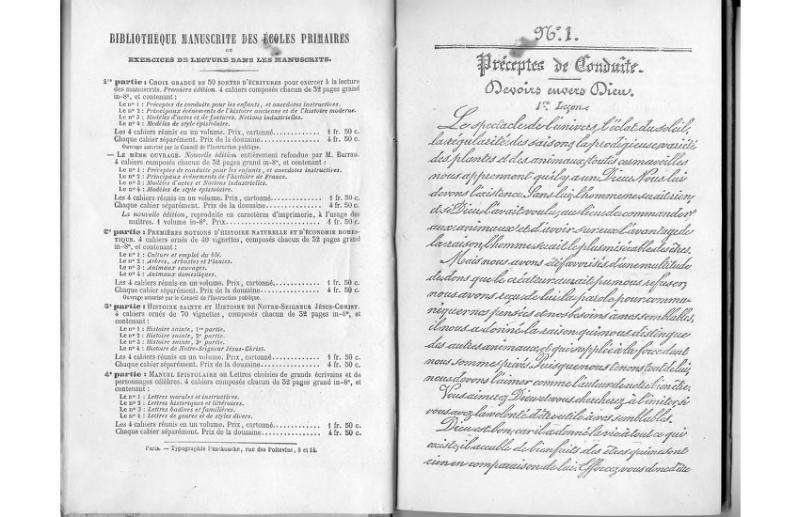 BIBLIOTHÈQUE MANUSCRITE DES ÉCOLES PRIMAIRES
OU
EXERCICES DE LECTURE DANS LES MANUSCRITS.
1re partie : CHOIX GRADUÉ DE 50 SORTES D'ÉCRITURES pour exercer à la lecture
des manuscrits. Première édition. 4 cahiers composés chacun de 32 pages grand
in-8°, et contenant :
Le n° 1 : Préceptes de conduite pour les enfants, et anecdotes instructives.
Le n° 2 : Principaux événements de l'histoire ancienne et de l'histoire moderne.
Le n° 3 : Modèles d'actes et de factures. Notions industrielles.
Le n° 4 : Modèles de style épistolaire.
Les 4 cahiers réunis en un volume. Prix, cartonné............ 1 fr. 50 c.
Chaque cahier séparément. Prix de la douzaine............ 4 fr. 50 c.
Ouvrage autorisé par le Conseil de l'Instruction publique.
— LE MÊME OUVRAGE. Nouvelle édition entièrement refondue par M. Barrau.
4 cahiers composés chacun de 32 pages grand in-8°, et contenant :
Le n° 1 : Préceptes de conduite pour les enfants, et anecdotes instructives.
Le n° 2 : Principaux événements de l'histoire de France.
Le n° 3 : Modèles d'actes et Notions industrielles.
Le n° 4 : Modèles de style épistolaire.
Les 4 cahiers réunis en un volume. Prix, cartonné............ 1 fr. 50 c.
Chaque cahier séparément. Prix de la douzaine............ 4 fr. 50 c.
La nouvelle édition, reproduite en caractères d'imprimerie, à l'usage des
maîtres. 1 volume in-8°. Prix............
2e partie : PREMIÈRES NOTIONS D'HISTOIRE NATURELLE ET D'ÉCONOMIE DOMES-
TIQUE. 4 cahiers ornés de 40 vignettes, composés chacun de 32 pages grand
in-8°, et contenant :
Le n° 1 : Culture et emploi du blé.
Le n° 2 : Arbres, Arbustes et Plantes.
Le n° 3 : Animaux sauvages.
Le n° 4 : Animaux domestiques.
Les 4 cahiers réunis en un volume. Prix, cartonné............ 1 fr. 50 c.
Chaque cahier séparément. Prix de la douzaine............ 4 fr. 50 c.
Ouvrage autorisé par le Conseil de l'Instruction publique.
3e partie : HISTOIRE SAINTE ET HISTOIRE DE NOTRE-SEIGNEUR JÉSUS-CHRIST.
4 cahiers ornés de 70 vignettes, composés chacun de 32 pages grand in-8°, et
contenant :
Le n° 1 : Histoire sainte, 1re partie.
Le n° 2 : Histoire sainte, 2e partie.
Le n° 3 : Histoire sainte, 3e partie.
Le n° 4 : Histoire de Notre-Seigneur Jésus-Christ.
Les 4 cahiers réunis en un volume. Prix, cartonné............ 1 fr. 50 c.
Chaque cahier séparément. Prix de la douzaine............ 4 fr. 50 c.
4e partie : MANUEL ÉPISTOLAIRE ou Lettres choisies de grands écrivains et de
personnages célèbres. 4 cahiers composés chacun de 32 pages grand in-8°, et
contenant :
Le n° 1 : Lettres morales et instructives.
Le n° 2 : Lettres historiques et littéraires.
Le n° 3 : Lettres badines et familières.
Le n° 4 : Lettres de genres et de styles divers.
Les 4 cahiers réunis en un volume. Prix, cartonné............ 1 fr. 50 c.
Chaque cahier séparément. Prix de la douzaine............ 4 fr. 50 c.
Paris. — Typographie Panckoucke, rue des Poitevins, 8 et 14.
N°. 1.
Préceptes de Conduite.
Devoirs envers Dieu.
1re Leçon.
Le spectacle de l'univers, l'éclat du soleil,
la régularité des saisons, la prodigieuse variété
des plantes et des animaux, toutes ces merveilles
nous apprennent qu'il y a un Dieu. Nous lui
devons l'existence. Sans lui, l'homme ne serait rien,
et si Dieu l'avait voulu, au lieu de commander
aux animaux et d'avoir sur eux l'avantage de
la raison, l'homme serait le plus misérable des êtres.
Mais nous avons été favorisés d'une multitude
de dons que le créateur aurait pu nous refuser;
nous avons reçu de lui la parole pour commu-
niquer nos pensées et nos besoins à nos semblables,
il nous a donné la raison qui nous distingue
des autres animaux, et qui supplée à la force dont
nous sommes privés. Puisque nous tenons tout de lui,
nous devons l'aimer comme l'auteur de notre bien être.
Vous aimerez Dieu et vous chercherez à l'imiter, si
vous avez la volonté d'être utile à vos semblables.
Dieu est bon, car il a donné la vie à tout ce qui
existe; il accable de bienfaits des êtres qui ne sont
rien en comparaison de lui. Efforcez vous donc d'être